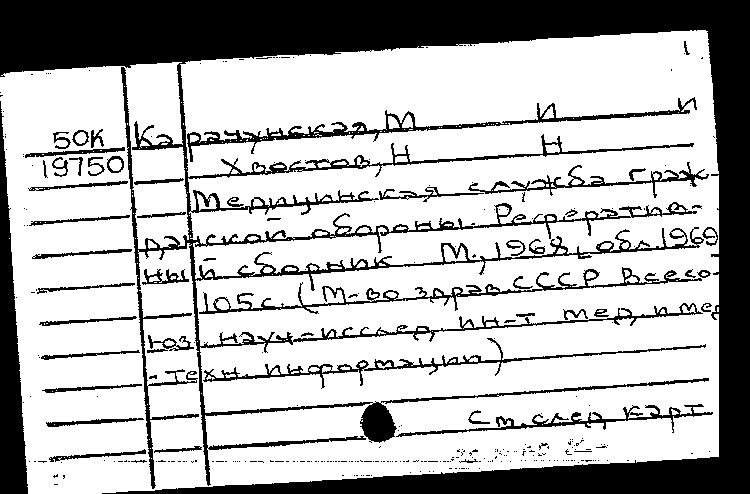 1
50К Карачунская, М И И
19750 Хвостов, Н Н
Медицинская служба граж-
данской обороны. Реферatив-
ный сборник М., 1968, обл. 1969
105с. (М-во здрав. СССР Всесо-
юз. науч-исслед. ин-т мед. и мед
-техн. информации)
См. след. карт